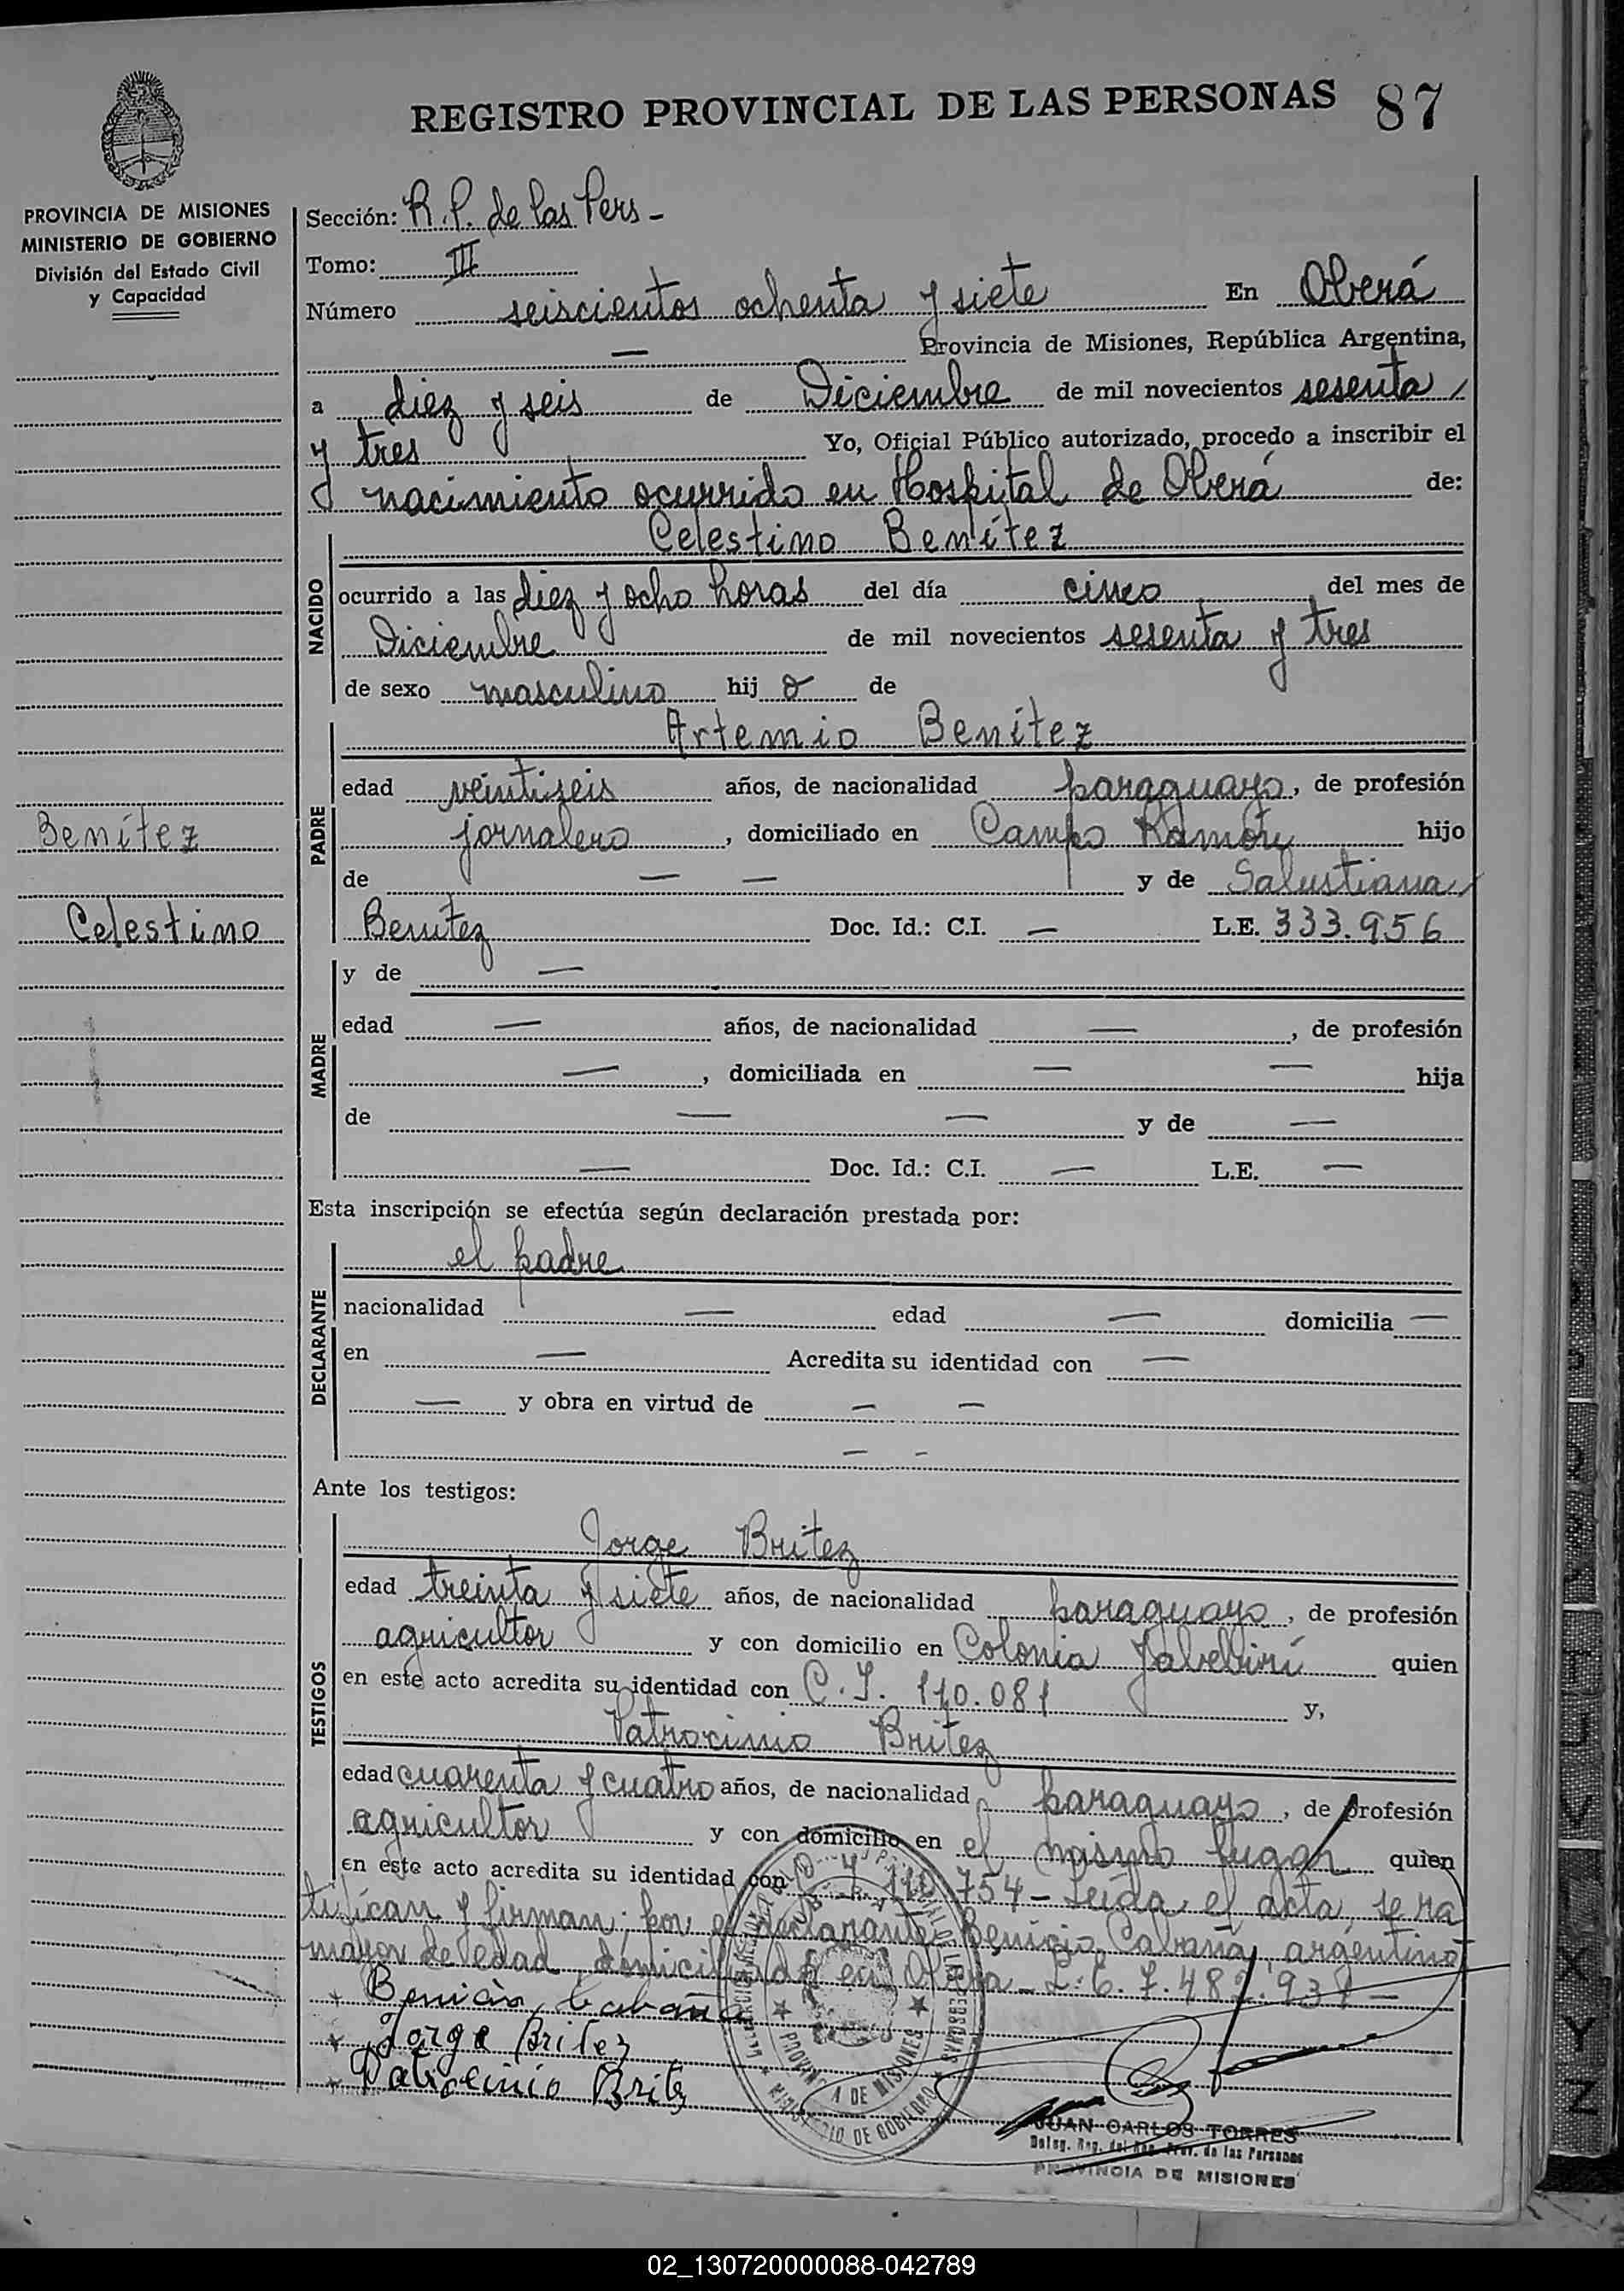 REGISTRO PROVINCIAL DE LAS PERSONAS 87
PROVINCIA DE MISIONES
MINISTERIO DE GOBIERNO
División del Estado Civil
y Capacidad
Benítez
Celestino
Sección: R. P. de las Pers -
Tomo: III
Número seiscientos ochenta y siete En Oberá
— Provincia de Misiones, República Argentina,
a diez y seis de Diciembre de mil novecientos sesenta
y tres Yo, Oficial Público autorizado, procedo a inscribir el
nacimiento ocurrido en Hospital de Oberá de:
NACIDO
Celestino Benítez
ocurrido a las diez y ocho horas del día cinco del mes de
Diciembre de mil novecientos sesenta y tres
de sexo masculino hij o de
PADRE
Artemio Benítez
edad veintiseis años, de nacionalidad paraguayo, de profesión
jornalero, domiciliado en Campo Ramón hijo
de — — y de Salustiana
Benitez Doc. Id.: C.I. — L.E. 333.956
MADRE
y de —
edad — años, de nacionalidad —, de profesión
—, domiciliada en — — hija
de — — y de —
— Doc. Id.: C.I. — L.E. —
Esta inscripción se efectúa según declaración prestada por:
DECLARANTE
el padre
nacionalidad — edad — domicilia —
en — Acredita su identidad con —
— y obra en virtud de — —
— -
Ante los testigos:
TESTIGOS
Jorge Britez
edad treinta y siete años, de nacionalidad paraguayo, de profesión
agricultor y con domicilio en Colonia Yabebirí quien
en este acto acredita su identidad con C.I. 110.081 y,
Patrocinio Britez
edad cuarenta y cuatro años, de nacionalidad paraguayo, de profesión
agricultor y con domicilio en el mismo lugar quien
en este acto acredita su identidad con 754 - Leída el acta, se ra
tifican y firman; por el declarante Benicio Cabaña, argentino,
mayor de edad, domiciliado en Oberá - L.E. 7.482.931 -
Benicio Cabaña
Jorge Britez
Patrocinio Britz
PROVINCIA DE MISIONES
MINISTERIO DE GOBIERNO
JUAN CARLOS TORRES
Deleg. Reg. del Reg. Prov. de las Personas
PROVINCIA DE MISIONES
Z Y X
02_130720000088-042789